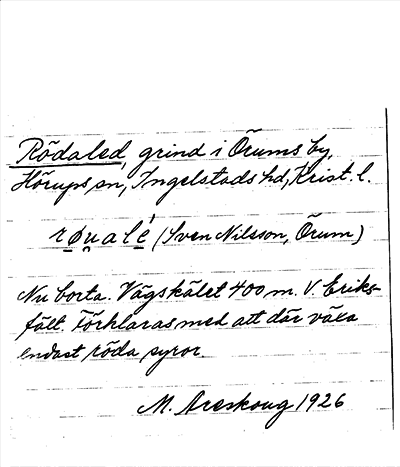 Rödaled, grind i Örums by,
Hörups sn, Ingelstads hd, Krist. l.
røu̯alé (Sven Nilsson, Örum)
Nu borta. Vägskälet 400 m. V. Eriks-
fält. Förklaras med att där växa
endast röda syror.
M. Areskoug 1926